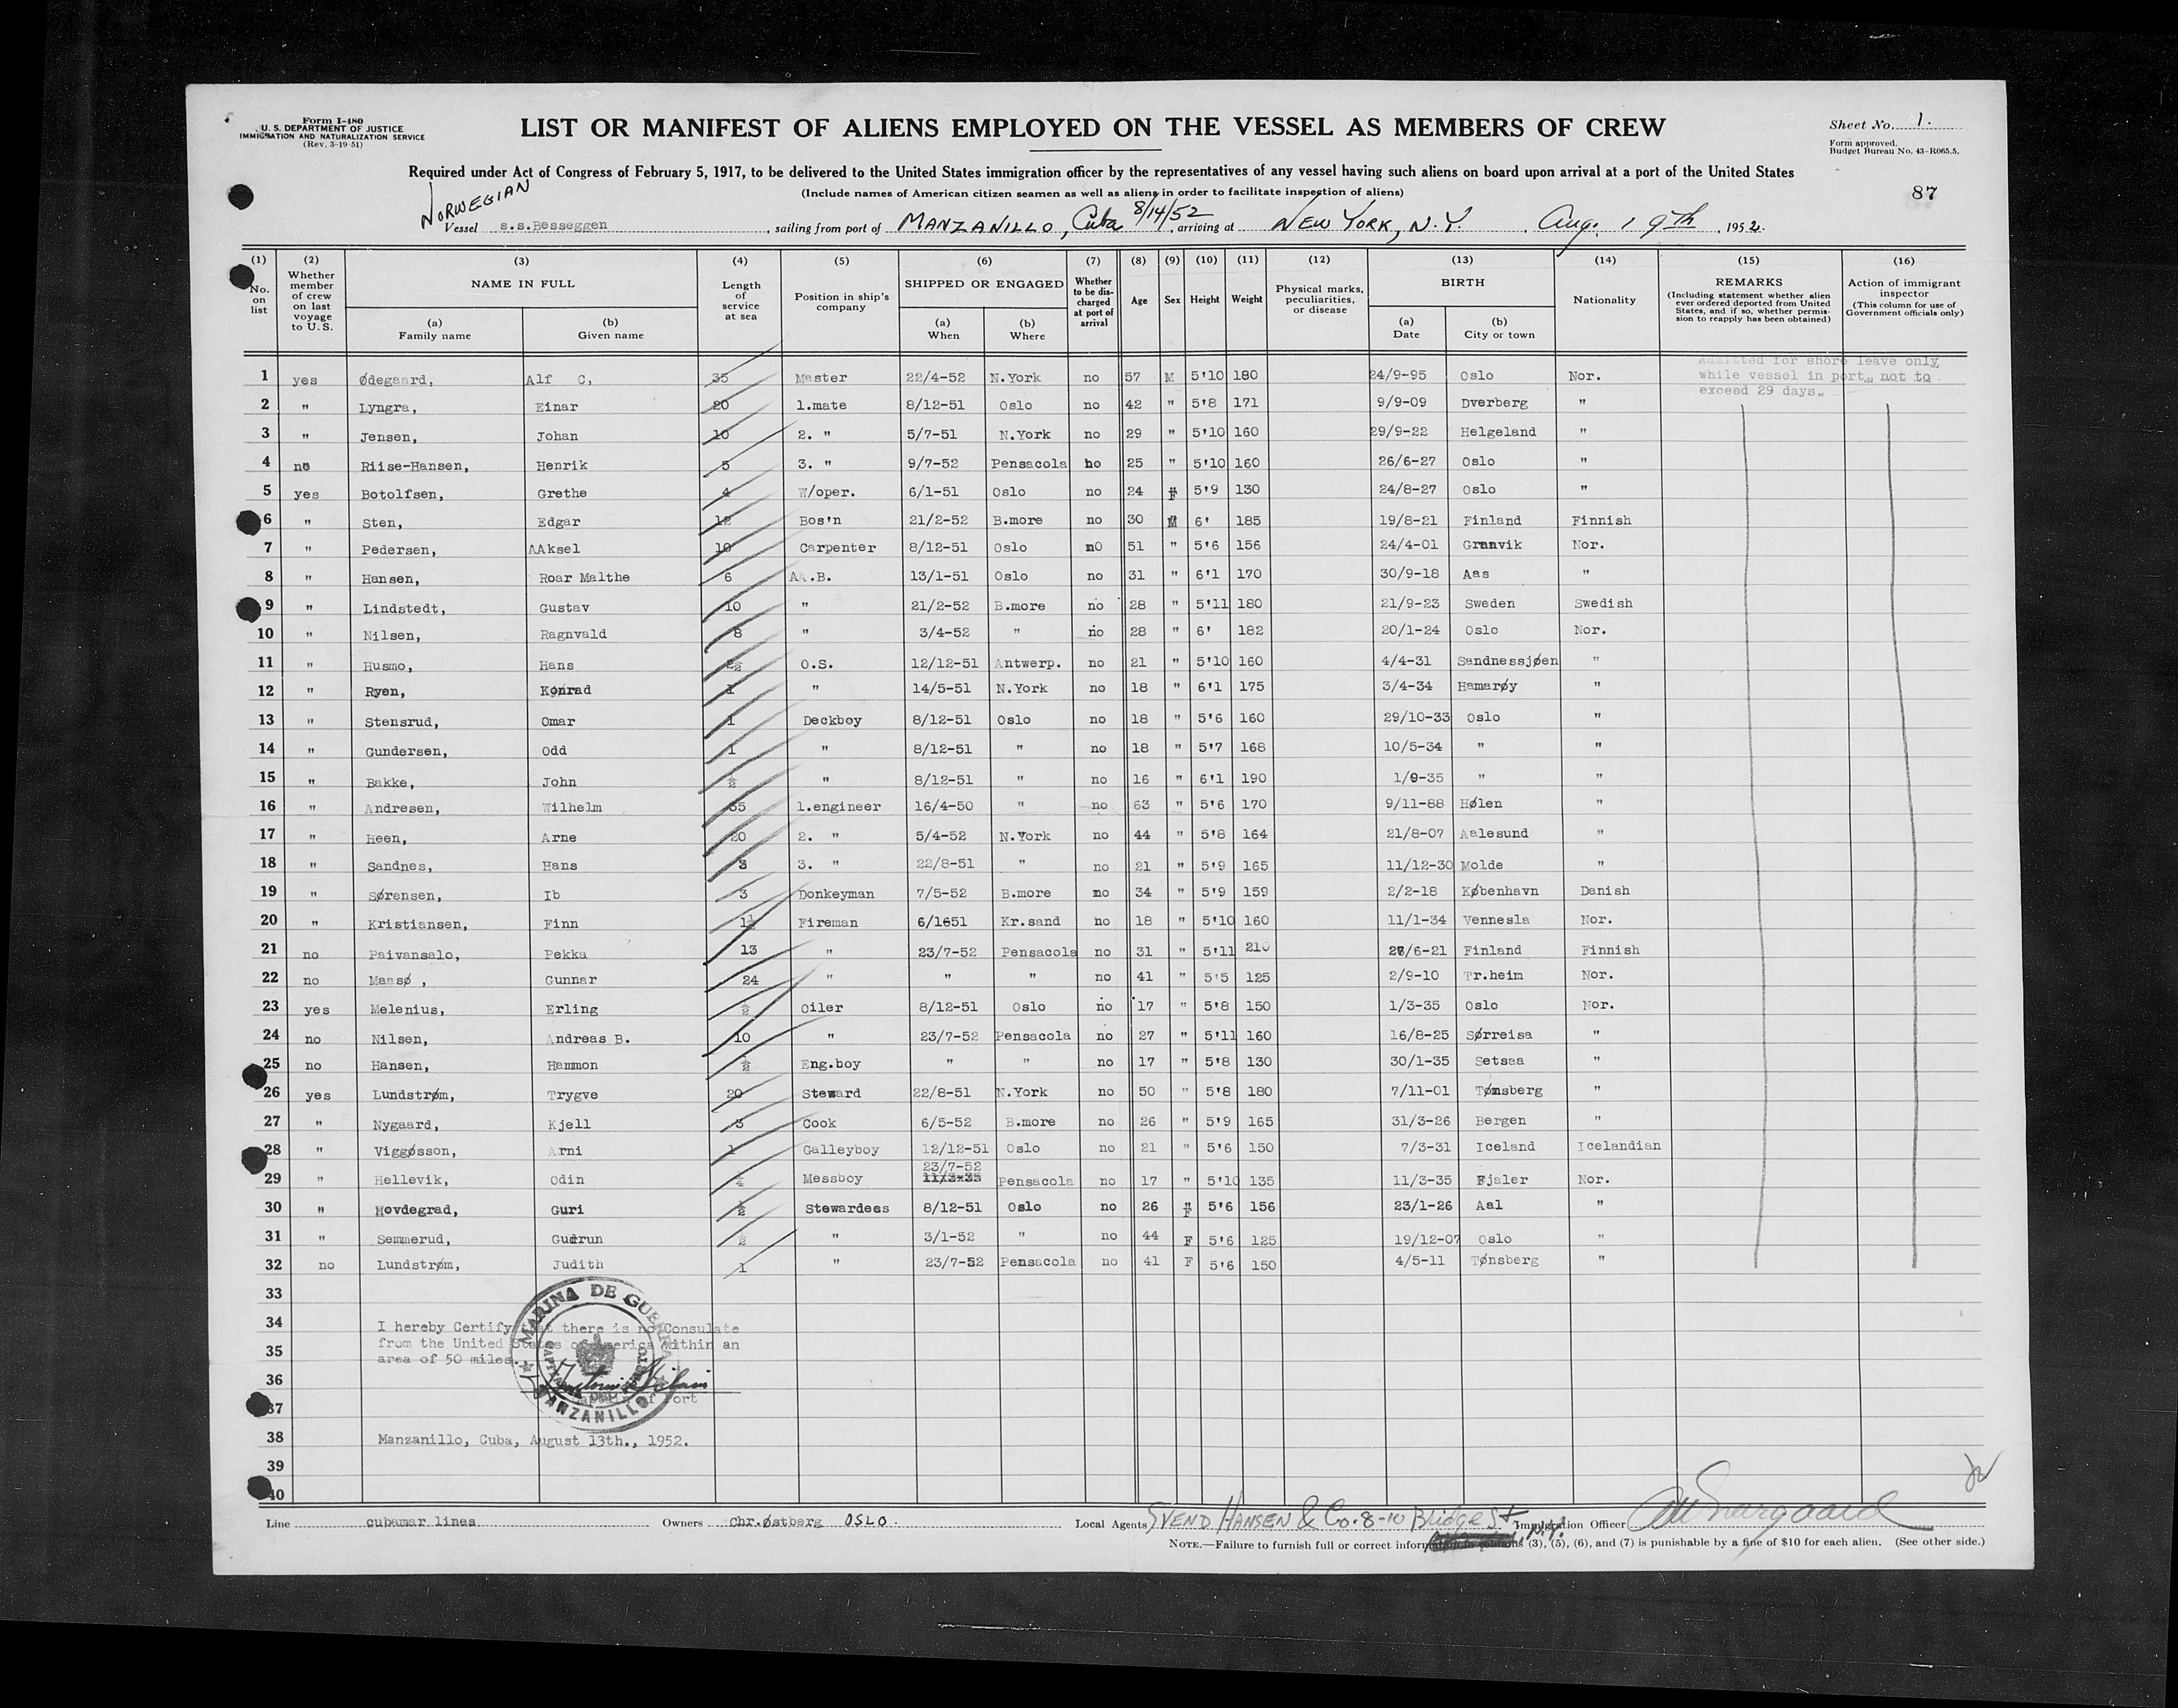 Form I-480
U. S. DEPARTMENT OF JUSTICE
IMMIGRATION AND NATURALIZATION SERVICE
(Rev. 3-19-51)
LIST OR MANIFEST OF ALIENS EMPLOYED ON THE VESSEL AS MEMBERS OF CREW
Sheet No. 1.
Form approved.
Budget Bureau No. 43-R065.5.
Required under Act of Congress of February 5, 1917, to be delivered to the United States immigration officer by the representatives of any vessel having such aliens on board upon arrival at a port of the United States
(Include names of American citizen seamen as well as aliens in order to facilitate inspection of aliens)
87
NORWEGIAN
Vessel s.s.Besseggen, sailing from port of MANZANILLO, Cuba 8/14/52, arriving at NEW YORK, N.Y. Aug. 19th, 1952.
(1) No. on list
(2) Whether member of crew on last voyage to U. S.
(3) NAME IN FULL (a) Family name (b) Given name
(4) Length of service at sea
(5) Position in ship's company
(6) SHIPPED OR ENGAGED (a) When (b) Where
(7) Whether to be discharged at port of arrival
(8) Age
(9) Sex
(10) Height
(11) Weight
(12) Physical marks, peculiarities, or disease
(13) BIRTH (a) Date (b) City or town
(14) Nationality
(15) REMARKS (Including statement whether alien ever ordered deported from United States, and if so, whether permission to reapply has been obtained)
(16) Action of immigrant inspector (This column for use of Government officials only)
Admitted for shore leave only
while vessel in port, not to
exceed 29 days.
1 yes Ødegaard, Alf C, 35 Master 22/4-52 N.York no 57 M 5'10 180 24/9-95 Oslo Nor.
2 " Lyngra, Einar 20 1.mate 8/12-51 Oslo no 42 " 5'8 171 9/9-09 Dverberg "
3 " Jensen, Johan 10 2. " 5/7-51 N.York no 29 " 5'10 160 29/9-22 Helgeland "
4 no Riise-Hansen, Henrik 5 3. " 9/7-52 Pensacola no 25 " 5'10 160 26/6-27 Oslo "
5 yes Botolfsen, Grethe 4 W/oper. 6/1-51 Oslo no 24 F 5'9 130 24/8-27 Oslo "
6 " Sten, Edgar 12 Bos'n 21/2-52 B.more no 30 M 6' 185 19/8-21 Finland Finnish
7 " Pedersen, AAksel 10 Carpenter 8/12-51 Oslo nO 51 " 5'6 156 24/4-01 Granvik Nor.
8 " Hansen, Roar Malthe 6 AA.B. 13/1-51 Oslo no 31 " 6'1 170 30/9-18 Aas "
9 " Lindstedt, Gustav 10 " 21/2-52 B.more no 28 " 5'11 180 21/9-23 Sweden Swedish
10 " Nilsen, Ragnvald 8 " 3/4-52 " no 28 " 6' 182 20/1-24 Oslo Nor.
11 " Husmo, Hans 2½ O.S. 12/12-51 Antwerp. no 21 " 5'10 160 4/4-31 Sandnessjøen "
12 " Ryen, Konrad 1 " 14/5-51 N.York no 18 " 6'1 175 3/4-34 Hamarøy "
13 " Stensrud, Omar 1 Deckboy 8/12-51 Oslo no 18 " 5'6 160 29/10-33 Oslo "
14 " Gundersen, Odd 1 " 8/12-51 " no 18 " 5'7 168 10/5-34 " "
15 " Bakke, John ½ " 8/12-51 " no 16 " 6'1 190 1/9-35 " "
16 " Andresen, Wilhelm 35 1.engineer 16/4-50 " no 63 " 5'6 170 9/11-88 Hølen "
17 " Heen, Arne 20 2. " 5/4-52 N.York no 44 " 5'8 164 21/8-07 Aalesund "
18 " Sandnes, Hans 3 3. " 22/8-51 " no 21 " 5'9 165 11/12-30 Molde "
19 " Sørensen, Ib 3 Donkeyman 7/5-52 B.more no 34 " 5'9 159 2/2-18 København Danish
20 " Kristiansen, Finn 1½ Fireman 6/1651 Kr.sand no 18 " 5'10 160 11/1-34 Vennesla Nor.
21 no Paivansalo, Pekka 13 " 23/7-52 Pensacola no 31 " 5'11 210 /6-21 Finland Finnish
22 no Maasø , Gunnar 24 " " " no 41 " 5'5 125 2/9-10 Tr.heim Nor.
23 yes Melenius, Erling ½ Oiler 8/12-51 Oslo no 17 " 5'8 150 1/3-35 Oslo Nor.
24 no Nilsen, Andreas B. 10 " 23/7-52 Pensacola no 27 " 5'11 160 16/8-25 Sørreisa "
25 no Hansen, Hammon ½ Eng.boy " " no 17 " 5'8 130 30/1-35 Setsaa "
26 yes Lundstrøm, Trygve 20 Steward 22/8-51 N.York no 50 " 5'8 180 7/11-01 Tønsberg "
27 " Nygaard, Kjell 5 Cook 6/5-52 B.more no 26 " 5'9 165 31/3-26 Bergen "
28 " Viggøsson, Arni 1 Galleyboy 12/12-51 Oslo no 21 " 5'6 150 7/3-31 Iceland Icelandian
29 " Hellevik, Odin Messboy 23/7-52 11/3-35 Pensacola no 17 " 5'10 135 11/3-35 Fjaler Nor.
30 " Hovdegrad, Guri ½ Stewardees 8/12-51 Oslo no 26 F 5'6 156 23/1-26 Aal "
31 " Semmerud, Gudrun ½ " 3/1-52 " no 44 F 5'6 125 19/12-07 Oslo "
32 no Lundstrøm, Judith 1 " 23/7-52 Pensacola no 41 F 5'6 150 4/5-11 Tønsberg "
33
34
35
36
37
38
39
40
I hereby Certify that there is no Consulate
from the United States of America within an
area of 50 miles.
Captain of Port
MARINA DE GUERRA
MANZANILLO
Manzanillo, Cuba, August 13th., 1952.
Line cubamar lines Owners Chr.Østberg OSLO. Local Agents SVEND HANSEN & Co. 8-10 Bridge St N.Y. Immigration Officer
NOTE.—Failure to furnish full or correct information in columns (3), (5), (6), and (7) is punishable by a fine of $10 for each alien. (See other side.)